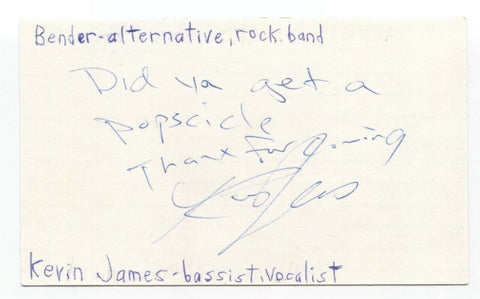 Bender-alternative, rock band
Did ya get a
popscicle
Thanx for coming
Kevin James-bassist, vocalist